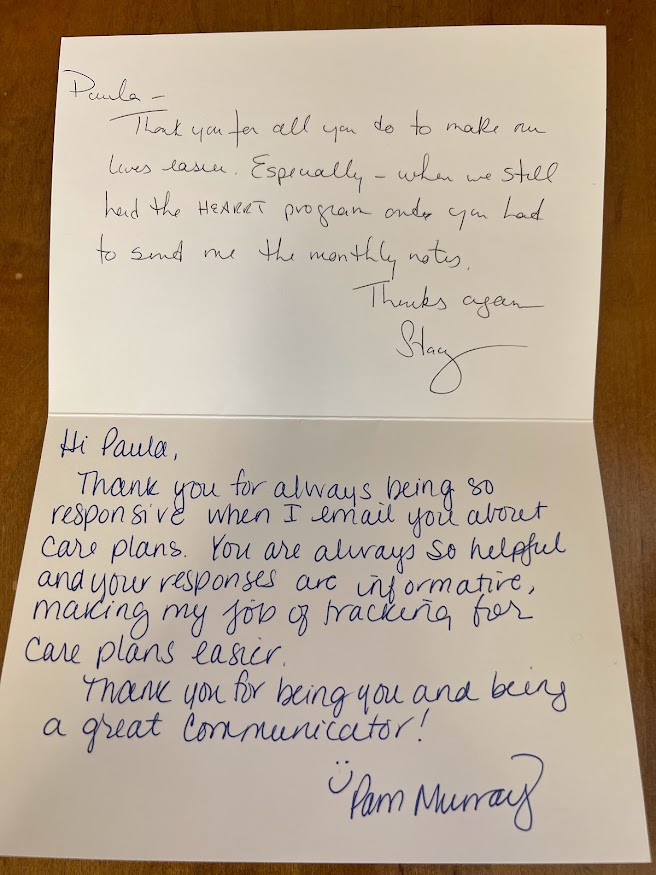 Paula –
Thank you for all you do to make our
lives easier. Especially – when we still
had the HEARRT program and you had
to send me the monthly notes.
Thanks again
Stacy
Hi Paula,
Thank you for always being so
responsive when I email you about
care plans. You are always so helpful
and your responses are informative,
making my job of tracking for
care plans easier.
Thank you for being you and being
a great communicator!
Pam Murray